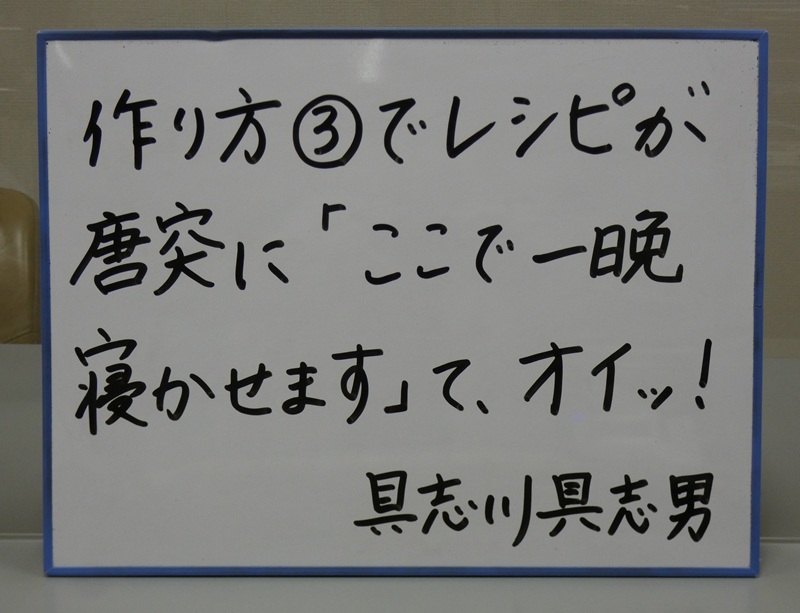 作り方③でレシピが
唐突に「ここで一晩
寝かせます」て、オイッ!
具志川具志男